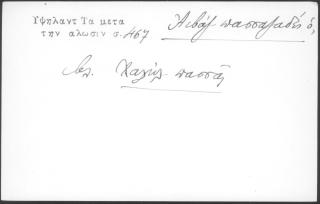 Υψηλαντ Τα μετα
την αλωσιν σ.467
Αιβάζ πασσαζαδές ὁ,
βλ. Χαλήλ πασσᾶς